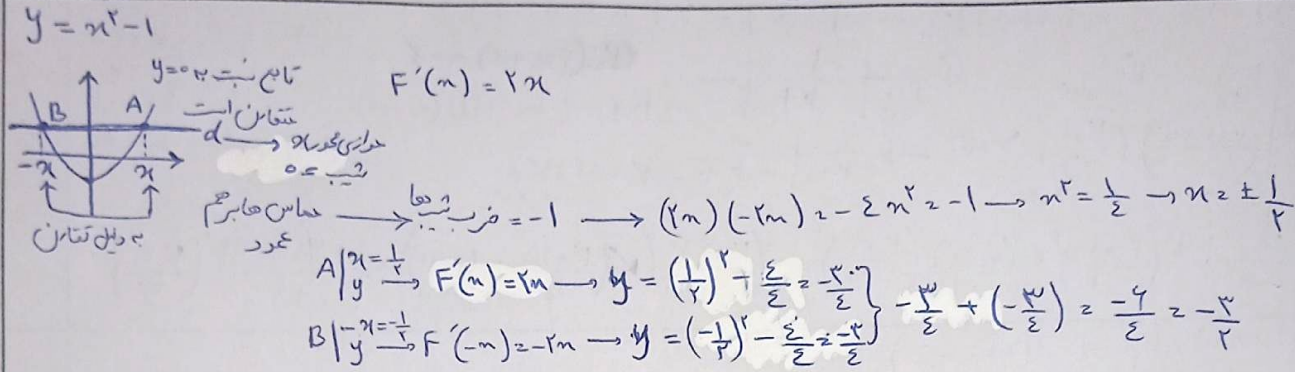 y = x² - ۱
تابع نسبت به y=۰
متقارن است
F′(x) = ۲x
B A
d → موازی محور xها
شیب = ۰
-x x
به دلیل تقارن
مماس ها بر هم عمود → ضرب شیب ها = -۱ → (۲x)(-۲x) = -٤x² = -۱ → x² = ۱/٤ → x = ± ۱/۲
A | x = ۱/۲ y → F′(x) = ۲x → y = (۱/۲)² - ٤/٤ = -۳/٤
B | -x = -۱/۲ y → F′(-x) = -۲x → y = (-۱/۲)² - ٤/٤ = -۳/٤
-۳/٤ + (-۳/٤) = -۶/٤ = -۳/۲